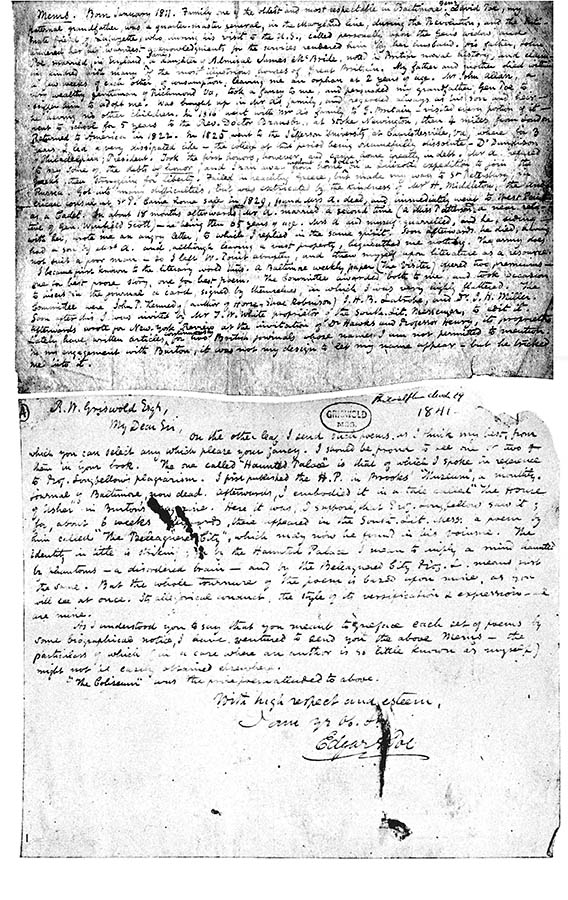 Mems. Born January 1811. Family one of the oldest and most respectable in Baltimore. Gen. David Poe, my
paternal grandfather, was a quarter-master general, in the Maryland line, during the Revolution, and the
Lafayette, who, during his visit to the U.S., called personally upon the Gen's widow, and
tendered her his acknowledgments for the services rendered him by her husband. His father, John
Poe married, in England, a daughter of Admiral James McBride, noted in British naval history, and
kindred with many of the most illustrious houses of Great Britain. My father and mother died within
a few weeks of each other of consumption, leaving me an orphan at 2 years of age. Mr. John Allan, a
very wealthy gentleman of Richmond Va, took a fancy to me, and persuaded my grandfather, Gen. Poe, to
suffer him to adopt me. Was brought up in Mr A's family, and regarded always as his son and heir —
he having no other children. In 1816 went with Mr A's family to G. Britain — visited every portion of it
went to school for 5 years to the Rev. Doctor Bransby, at Stoke Newington, then 4 miles from London.
Returned to America in 1822. In 1825 went to the Jefferson University at Charlottesville, Va, where for 3
years I led a very dissipated life — the college at that period being shamefully dissolute. Dr Dunglison
of Philadelphia, President. Took the first honors, however, and came home greatly in debt. Mr A. refused
to pay some of the debts of honor and I ran away from home on a quixotic expedition to join the
Greeks, then struggling for liberty. Failed in reaching Greece, but made my way to St Petersburg, in
Russia. Got into many difficulties, but was extricated by the kindness of Mr H. Middleton, the American
consul at St P. Came home safe in 1829, found Mrs A. dead, and immediately went to West Point
as a Cadet. In about 18 months afterwards Mr A. married a second time (a Miss Patterson, a near relative
of Gen. Winfield Scott) — he being then 65 years of age. Mrs A and myself quarrelled, and he, siding
with her, wrote me an angry letter, to which I replied in the same spirit. Soon afterwards he died, having
had a son by Mrs A. and, although leaving a vast property, bequeathed me nothing. The army does
not suit a poor man — so I left W. Point abruptly, and threw myself upon literature as a resource.
I became first known to the literary world thus. A Baltimore weekly paper (The Visiter) offered two premiums —
one for best prose story, one for best poem. The Committee awarded both to me, and took occasion
to insert in the journal a card, signed by themselves, in which I was very highly flattered. The
Committee were John P. Kennedy (author of Horse-Shoe Robinson) J.H.B. Latrobe and Dr J.H. Miller.
Soon after this I was invited by Mr T.W. White proprietor of the South. Lit. Messenger, to edit it.
Afterwards wrote for New York Review at the invitation of Dr Hawks and Professor Henry, its proprietors.
Lately have written articles for two British journals whose names I am not permitted to mention.
In my engagement with Burton, it was not my design to let my name appear — but he tricked
me into it.
Philadelphia March 29
R. W. Griswold Esqr, GRISWOLD MSS. 1841.
My Dear Sir,
On the other leaf I send such poems as I think my best, from
which you can select any which please your fancy. I should be proud to see one or two of
them in your book. The one called "Haunted Palace" is that of which I spoke in reference
to Prof. Longfellow's plagiarism. I first published the H.P. in Brooks' Museum, a monthly
journal of Baltimore, now dead. Afterwards, I embodied it in a tale called "The House
of Usher" in Burton's Magazine. Here it was, I suppose, that Prof. Longfellow saw it;
for, about 6 weeks afterwards, there appeared in the South. Lit. Mess: a poem by
him called "The Beleaguered City", which may now be found in his volume. The
identity in title is striking; for by the Haunted Palace I mean to imply a mind haunted
by phantoms — a disordered brain — and by the Beleaguered City Prof. L. means just
the same. But the whole tournure of the poem is based upon mine, as you
will see at once. Its allegorical conduct, the style of its versification & expression — all
are mine.
As I understood you to say that you meant to preface each set of poems by
some biographical notice, I have ventured to send you the above Mems — the
particulars of which (in a case where an author is so little known as myself)
might not be easily obtained elsewhere.
"The Coliseum" was the prize poem alluded to above.
With high respect and esteem,
I am yr ob. St
Edgar A Poe